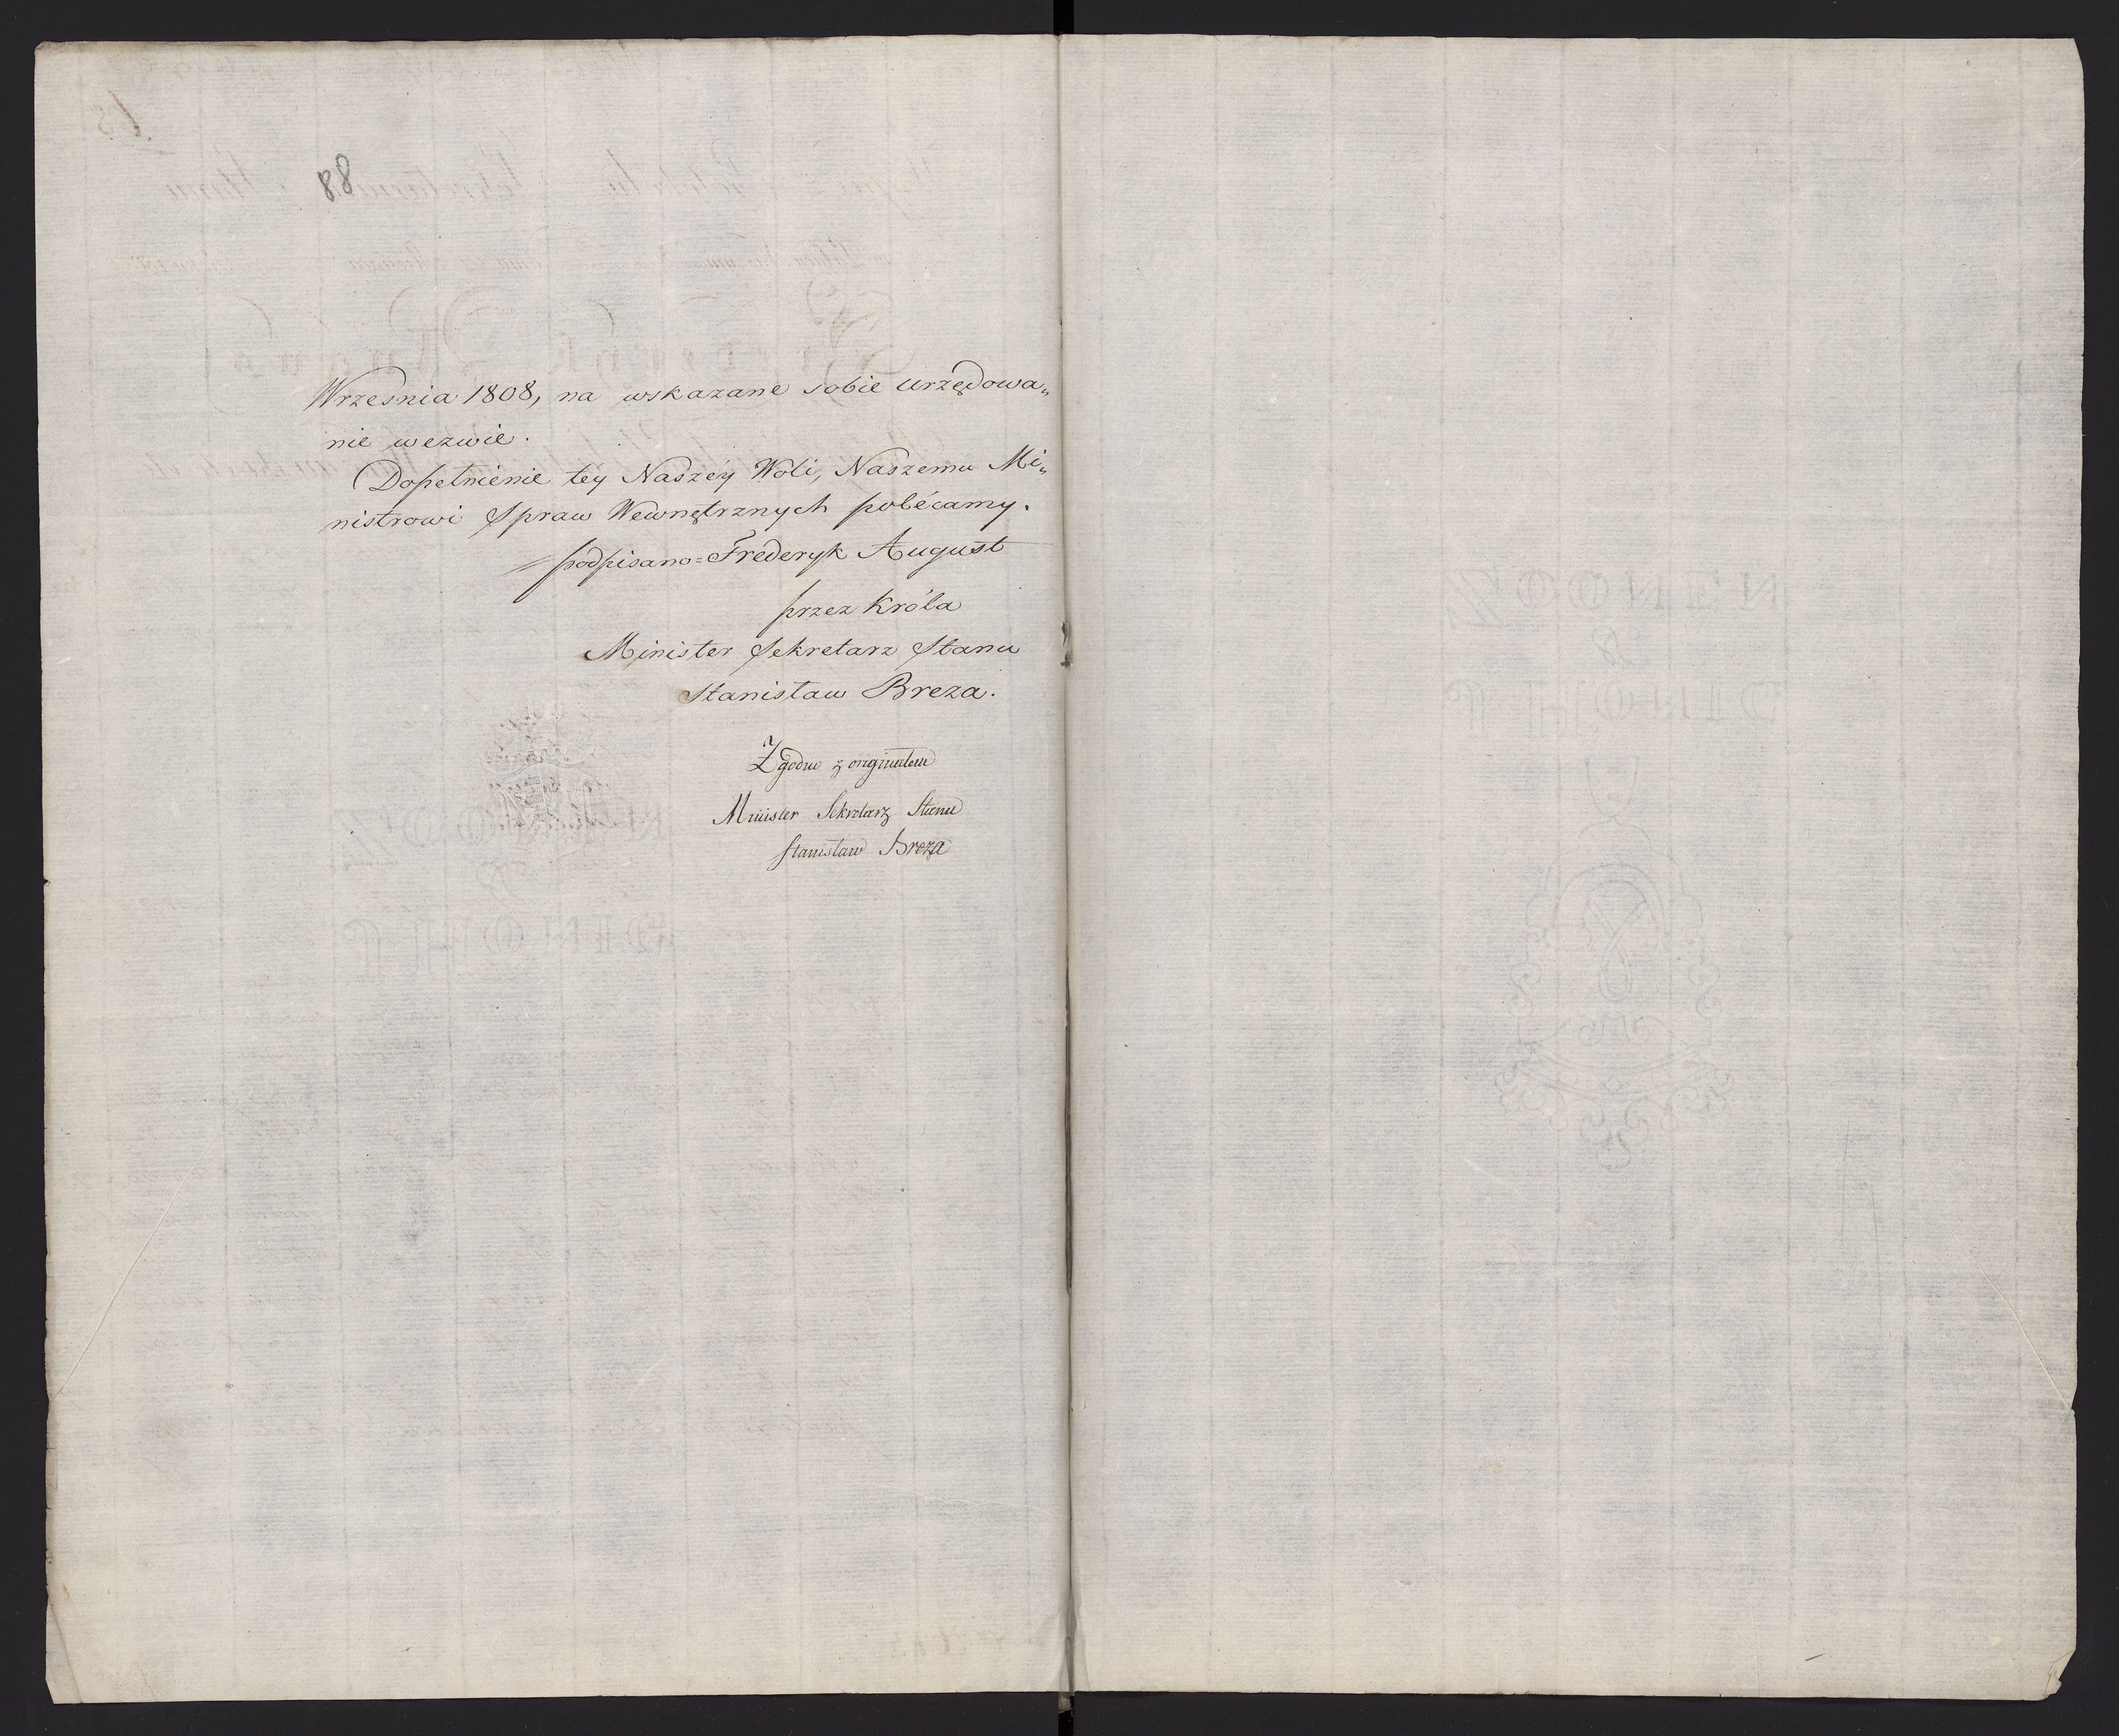 88
Września 1808, na wskazane sobie urzędowa„
nie wezwie.
Dopełnienie téy Naszéy Woli, Naszemu Mi„
nistrowi Spraw Wewnętrznych polécamy.
podpisano = Frederyk August
przez Króla
Minister Sekretarz Stanu
Stanisław Breza.
Zgodne z originałem
Minister Sekretarz Stanu
Stanisław Breza